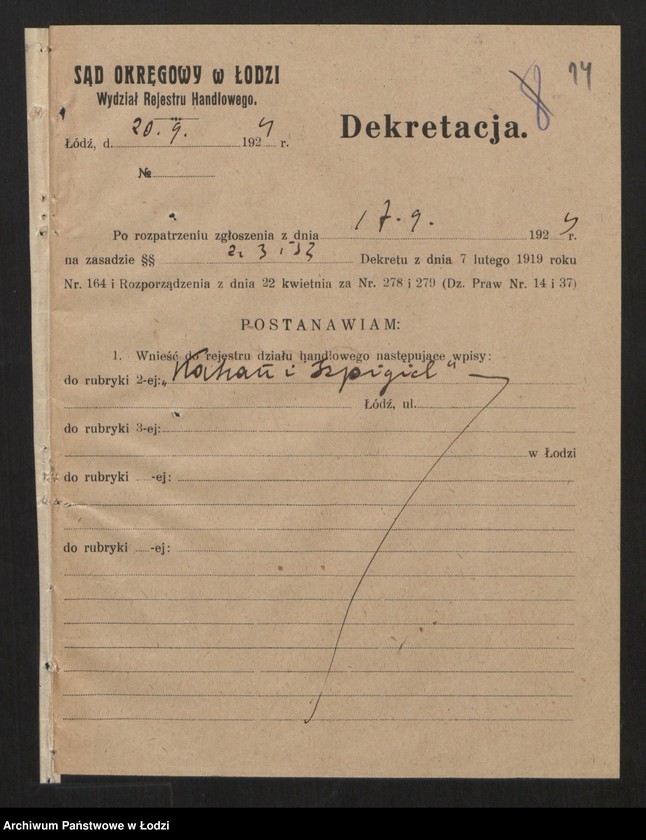 SĄD OKRĘGOWY w ŁODZI
Wydział Rejestru Handlowego.
8 14
Łódź, d. 20. 9. 1924 r.
Dekretacja.
№
Po rozpatrzeniu zgłoszenia z dnia 17. 9. 1924 r.
na zasadzie §§ 2, 3 i Dekretu z dnia 7 lutego 1919 roku
Nr. 164 i Rozporządzenia z dnia 22 kwietnia za Nr. 278 i 279 (Dz. Praw Nr. 14 i 37)
POSTANAWIAM:
1. Wnieść do rejestru działu handlowego następujące wpisy:
do rubryki 2-ej: „Kahan i Szpigiel"
Łódź, ul.
do rubryki 3-ej:
w Łodzi
do rubryki -ej:
do rubryki -ej:
Archiwum Państwowe w Łodzi